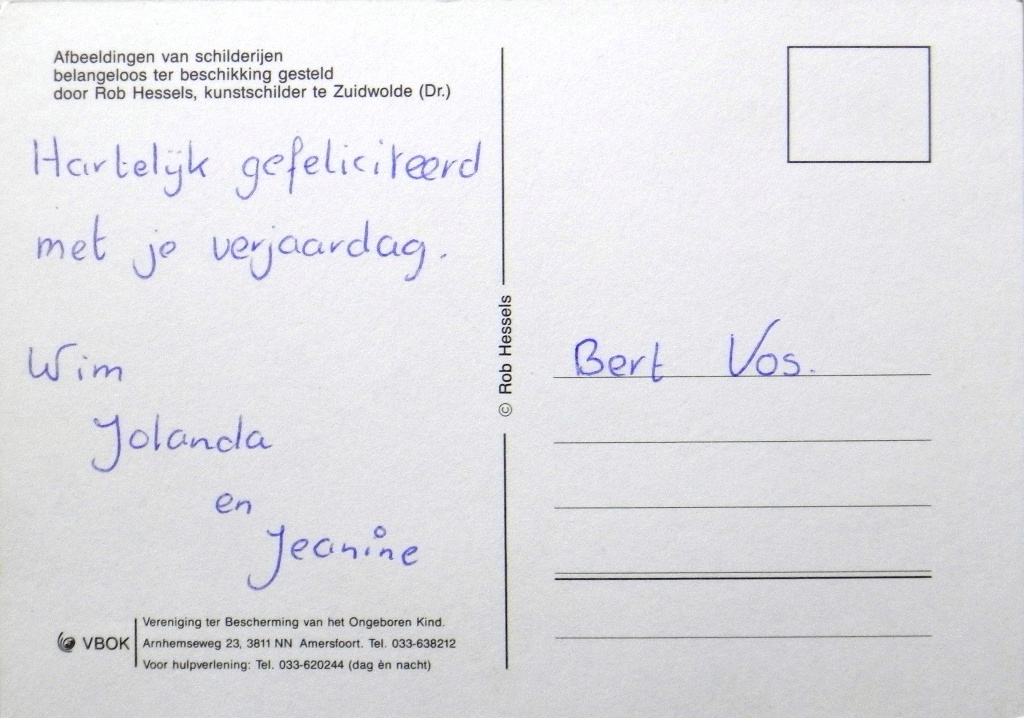 Afbeeldingen van schilderijen
belangeloos ter beschikking gesteld
door Rob Hessels, kunstschilder te Zuidwolde (Dr.)
Hartelijk gefeliciteerd
met je verjaardag.
Wim
Jolanda
en
Jeanine
VBOK
Vereniging ter Bescherming van het Ongeboren Kind.
Arnhemseweg 23, 3811 NN Amersfoort. Tel. 033-638212
Voor hulpverlening: Tel. 033-620244 (dag èn nacht)
© Rob Hessels
Bert Vos.